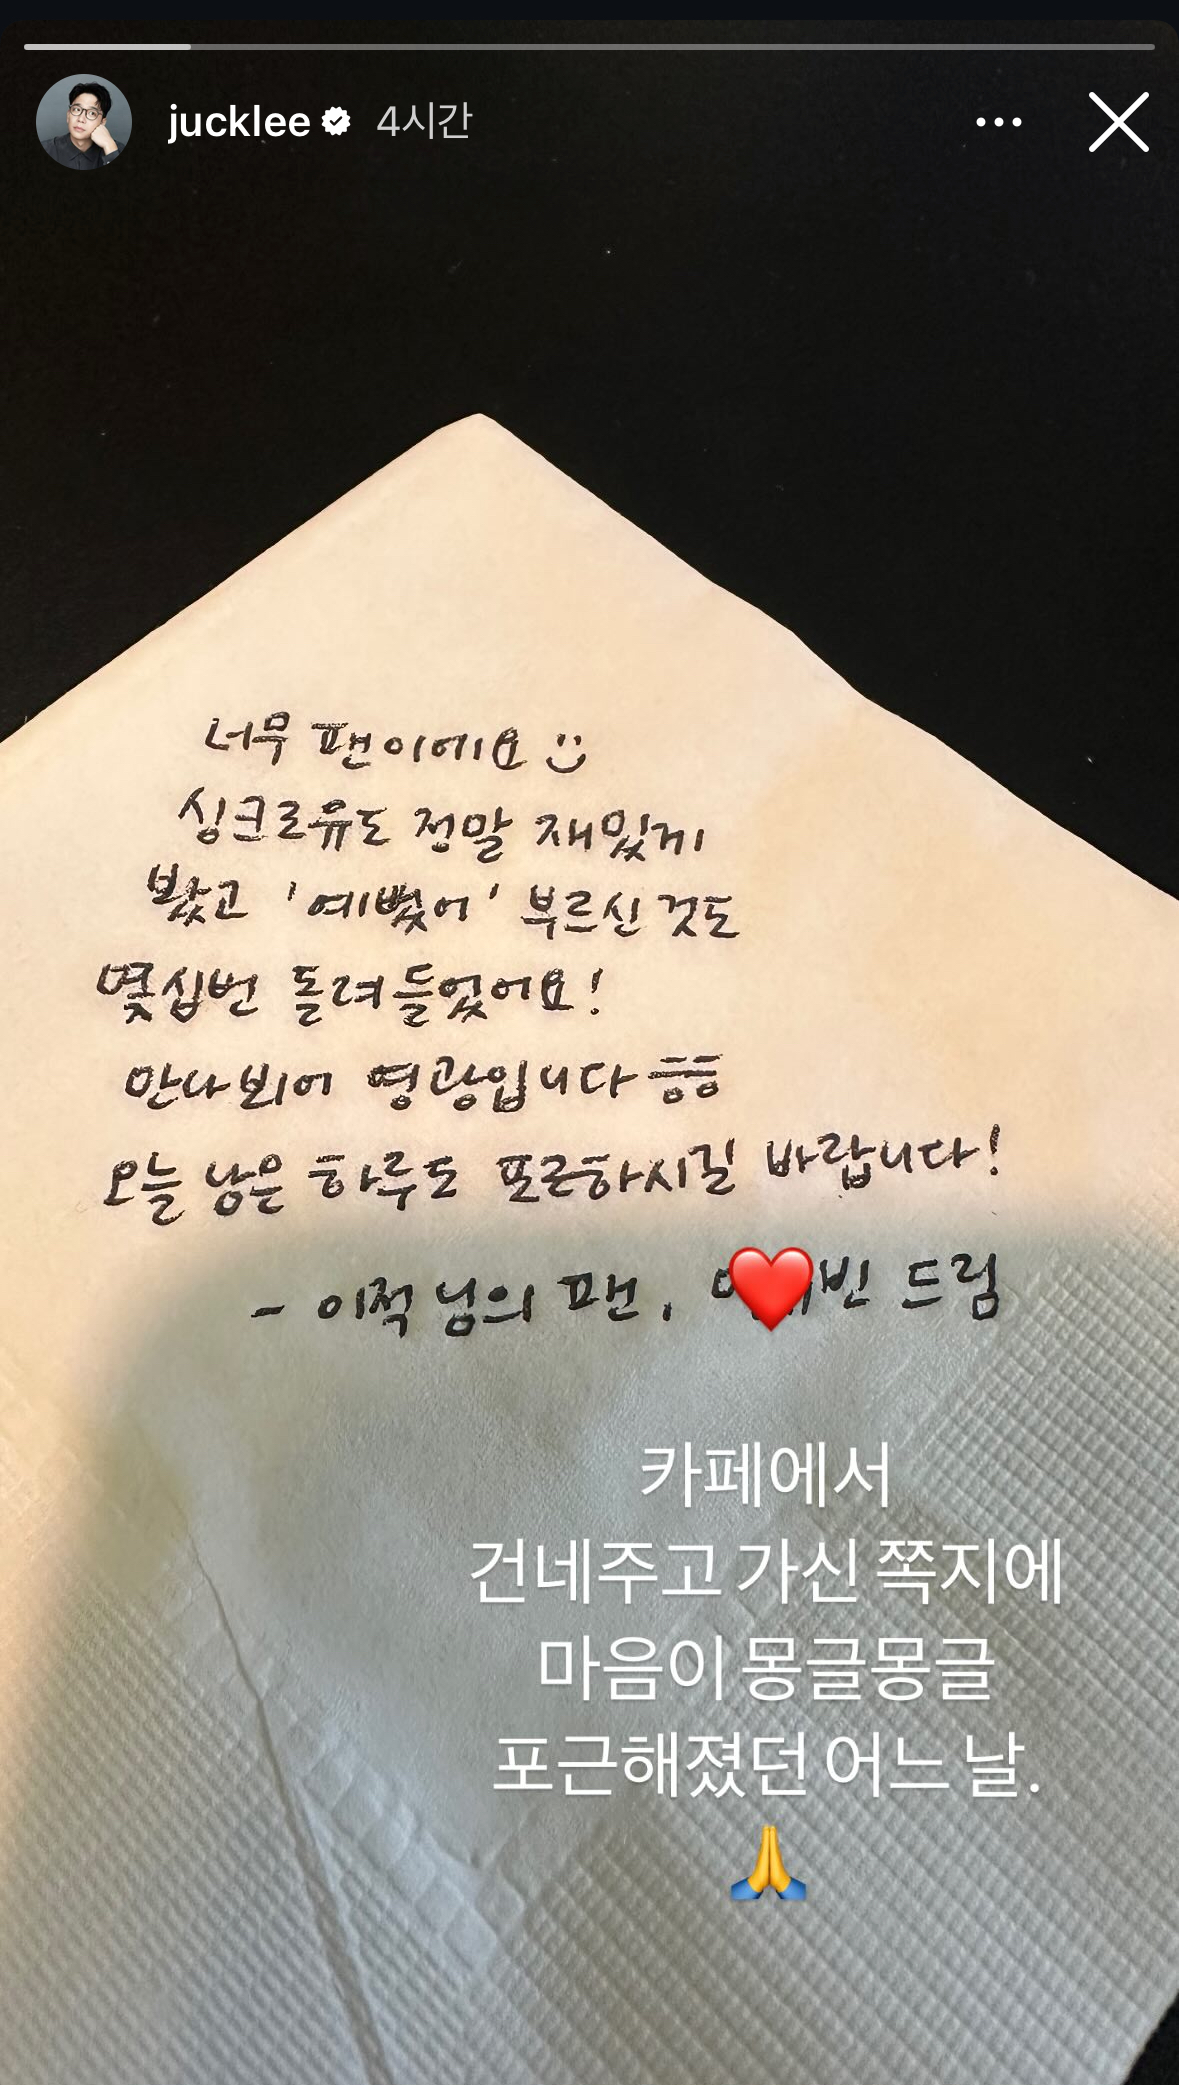 jucklee 4시간
너무 팬이에요 :)
싱크로유도 정말 재밌게
봤고 '예뻤어' 부르신 것도
몇십번 돌려 들었어요!
만나뵈어 영광입니다 ㅎㅎ
오늘 남은 하루도 포근하시길 바랍니다!
- 이적 님의 팬, 드림
카페에서
건네주고 가신 쪽지에
마음이 몽글몽글
포근해졌던 어느 날.
🙏